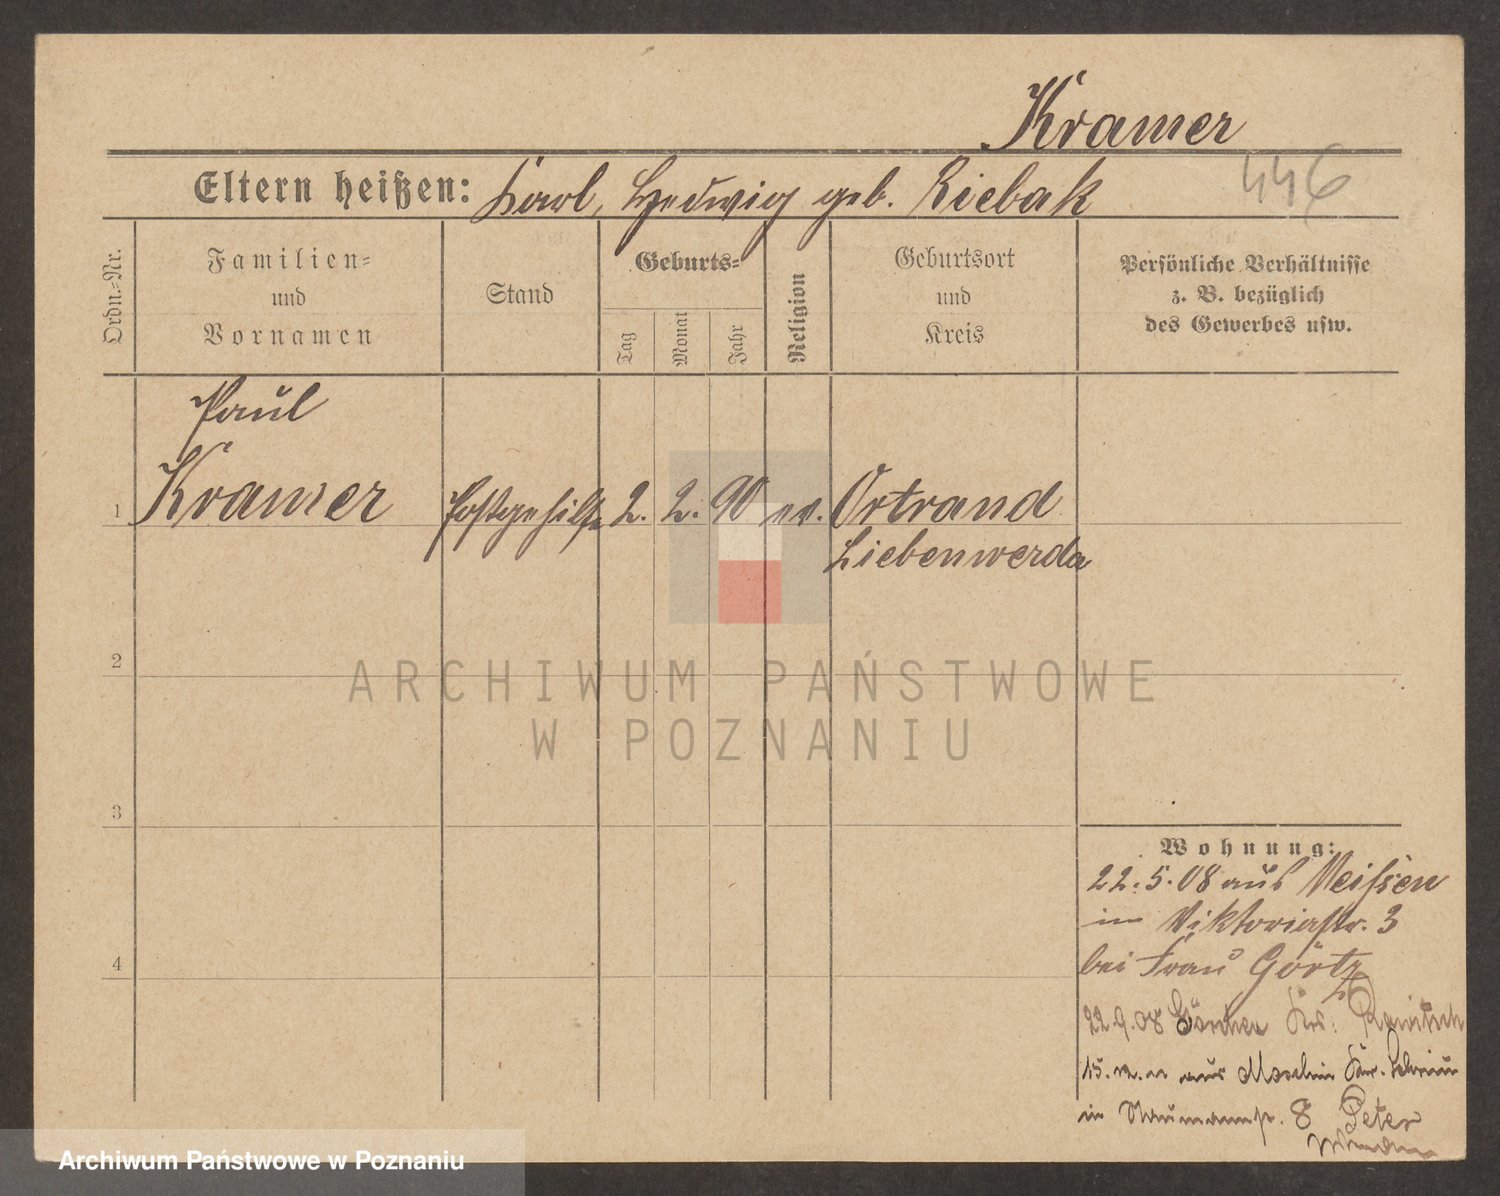 Kramer
446
Eltern heißen: Karl, Hedwig geb. Riebak
Ordn.-Nr.
Familien-
und
Vornamen
Stand
Geburts-
Tag
Monat
Jahr
Religion
Geburtsort
und
Kreis
Persönliche Verhältnisse
z. B. bezüglich
des Gewerbes usw.
Paul
1 Kramer Postgehilfe 2. 2. 90 ev. Ortrand
Liebenwerda
2
3
4
Wohnung:
22.5.08 aus Meißen
in Viktoriastr. 3
bei Frau Görtz
22.9.08 Krs.
15. aus Kr.
in Naumannstr. 8 Peter
ARCHIWUM PAŃSTWOWE
W POZNANIU
Archiwum Państwowe w Poznaniu